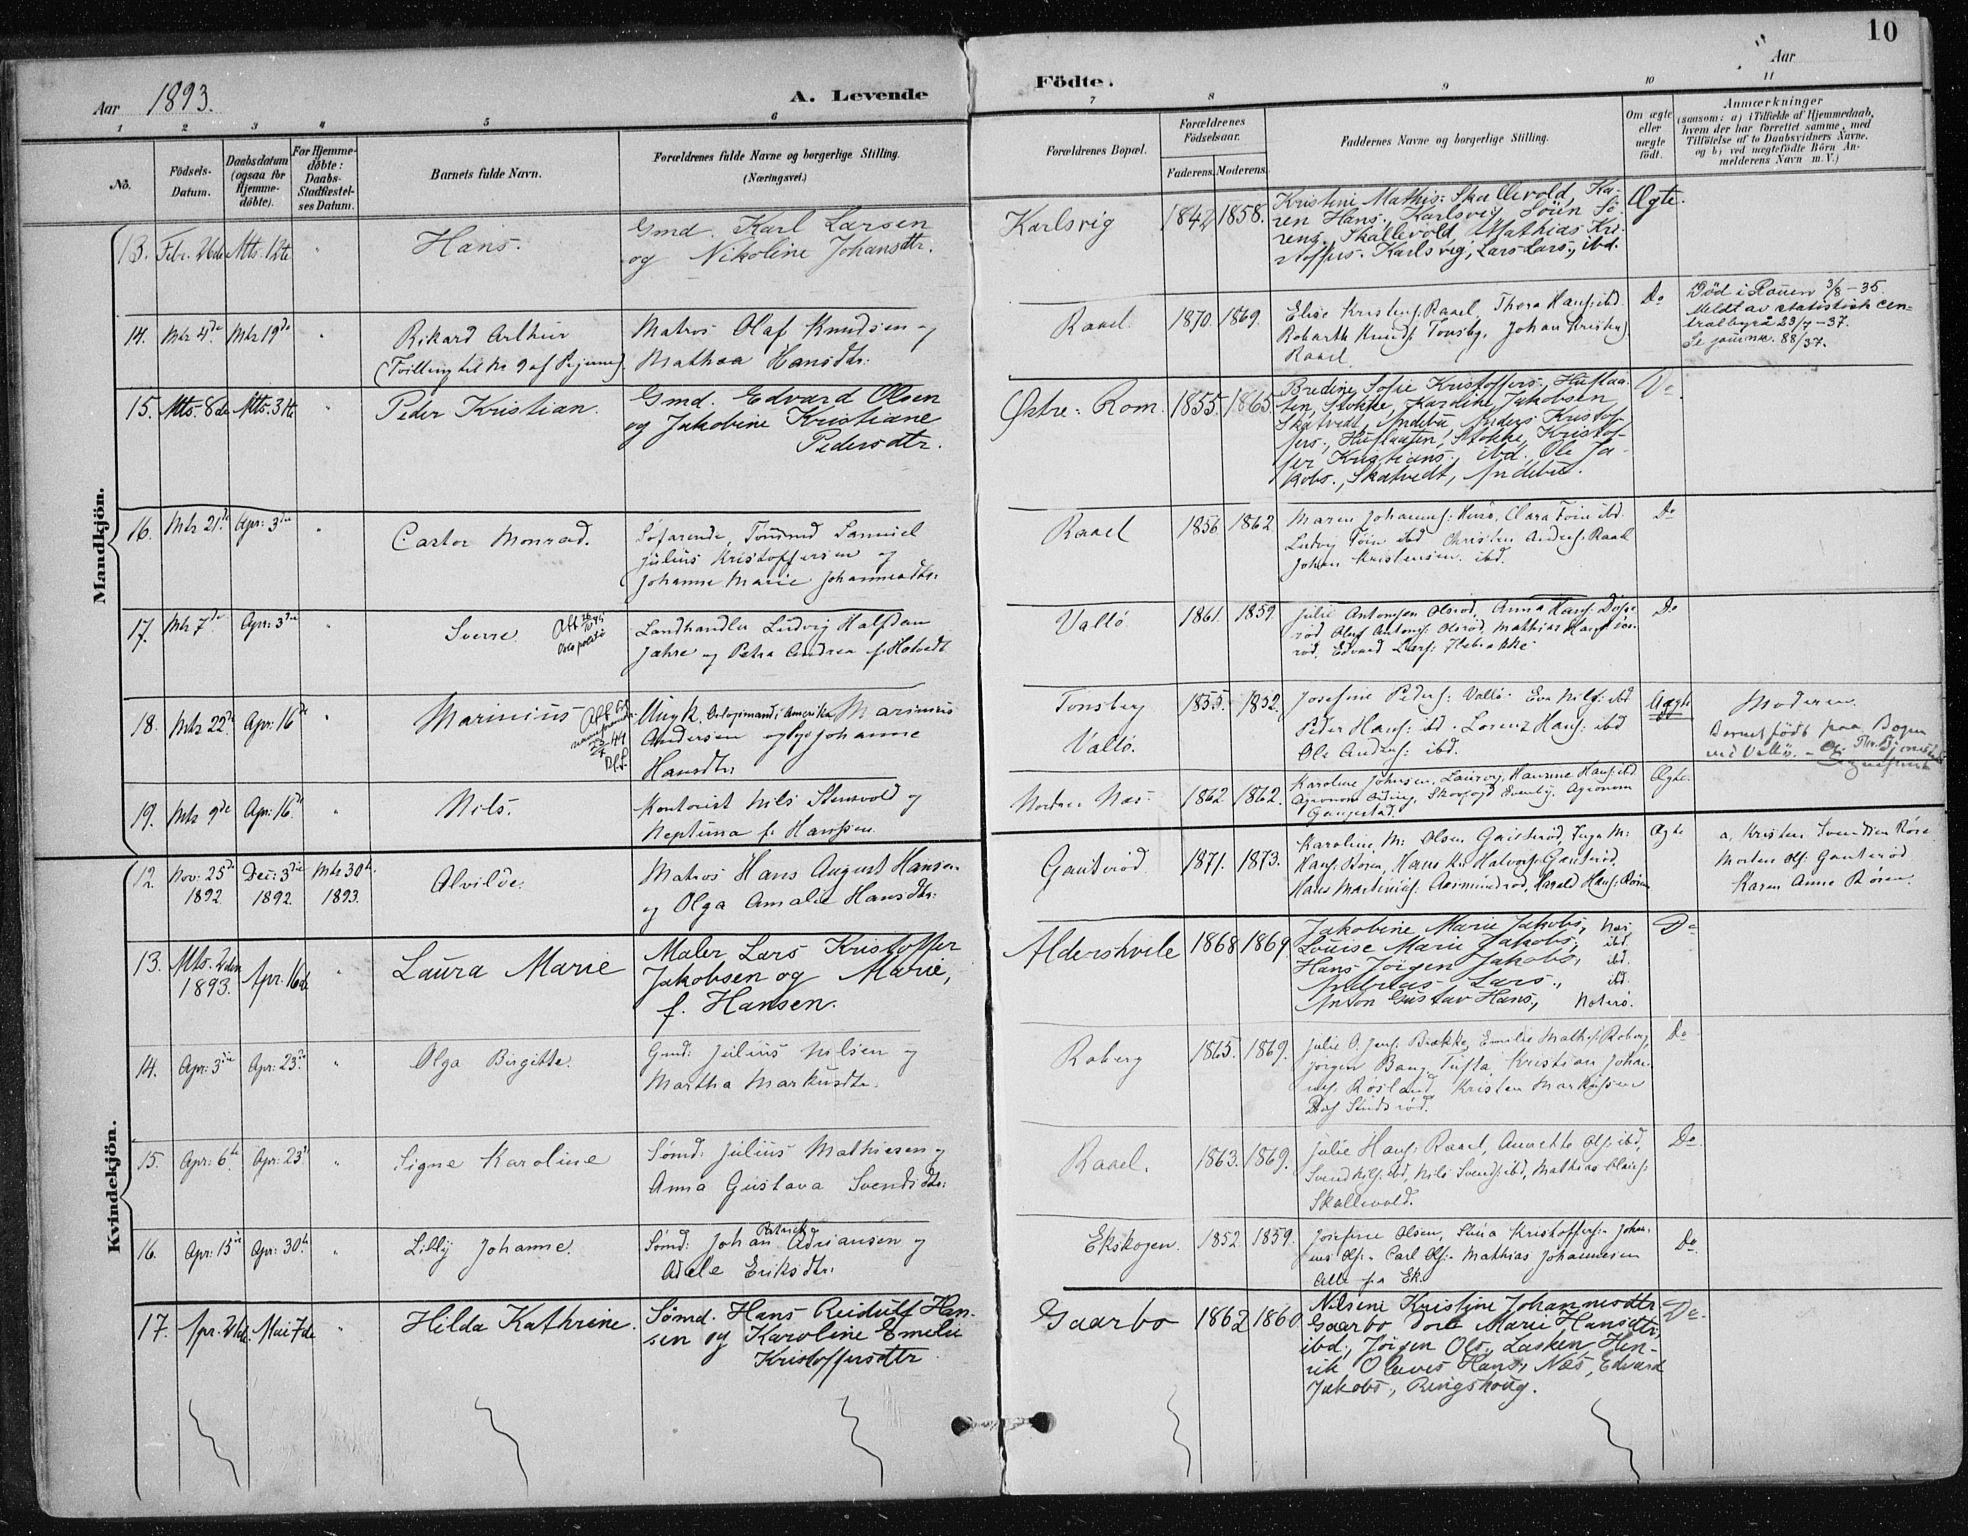 10
Aar 1893.
A. Levende
Födte.
Aar
1 2 3 4 5 6 7 8 9 10 11
No.
Födsels-Datum.
Daabsdatum (ogsaa for Hjemme-döbte).
For Hjemme-döbte: Daabs-Stadfæstel-ses Datum.
Barnets fulde Navn.
Forældrenes fulde Navne og borgerlige Stilling.
(Næringsvei.)
Forældrenes Bopæl.
Forældrenes Födselsaar.
Faderens. Moderens.
Faddernes Navne og borgerlige Stilling.
Om ægte eller uægte födt.
Anmærkninger
(saasom: a) i Tilfælde af Hjemmedaab, hvem der har forrettet samme, med Tilföielse af to Daabsvidners Navne, og b) ved uægtefödte Börn Anmelderens Navn m. V.)
Mandkjön.
13. Febr. 26de Mts. 12te " Hans. Gmd. Karl Larsen
og Nikoline Johansdtr.
Karlsvig 1842 1858. Kristine Mathis: Skallevold, Ka-
ren Hans., Karlsvig, Sören Sö-
rens. Skallevold Mathias Kri-
stoffers. Karlsvig, Lars Lars., ibd.
Ægte.
14. Mts 4de Mts 19de " Rikard Arthur
(Tvilling til No 9 af Pigerne)
Matros Olaf Knudsen og
Mathea Hansdtr.
Raael 1870. 1869. Elise Kristens: Raael, Thora Hans: ibd.
Robarth Knuds: Tonsbg, Johan Kristens:
Raael
Do
Död i Rouen 3/8-35.
Meldt av statistisk cen-
tralbyrå 23/7-37.
Se journ. 88/37.
15. Mts. 8de Mts. 31te " Peder Kristian. Gmd. Edvard Olsen
og Jakobine Kristiane
Pedersdtr.
Østre-Rom. 1855. 1865. Bredine Sofie Kristoffers., Huflaa-
ten, Stokke, Karoline Jakobsen,
Skatvedt, Andebu, Anders Kristof-
fers., Huflaaten, Stokke, Kristof-
fer Kristians., ibd. Ole Ja-
kobs., Skatvedt, Andebu.
Do
16. Mts 21de Apr: 3die " Castor Monrad. Söfarende, Tömmd Samuel
Julius Kristoffersen og
Johanne Marie Johannesdtr.
Raael 1856 1862 Maren Johannes: Husö, Clara Föin ibd.
Ludvig Föin ibd Christen Andres: Raael
Johan Kristensen ibd.
Do
17. Mts 7de Apr: 3die " Sverre Landhandler Ludvig Halfdan
Jahre og Petra Andrea f. Hotvedt
Vallö 1861. 1859. Julie Antonsen Olsröd, Anna Hans:
Do
18. Mts 22de Apr: 16de " Marinius Ungk. Marinius
Andersen og Johanne
Hansdtr.
Tonsberg
Vallö.
1855. 1852. Josefine Peders: Vallö. Eva Nils: ibd
Peder Hans: ibd - Lorenz Hans: ibd
Ole Andres: ibd.
Uægte
Moderen.
Barnet födt paa Bogen
ved Vallö.
19. Mts 9de Apr: 16de " Nils. Kontorist Nils Stensvold og
Neptuna f. Hanssen
Nordre Næs. 1862 1862. Karoline Johnsen, Laurvig, Hansine Hans: ibd
Ægte.
Kvindekjön.
12. Nov: 25de 1892 Dec: 3die 1892. Mts 30te 1893. Alvilde. Matros Hans August Hansen
og Olga Amalie Hansdtr.
Gauteröd 1871. 1873. Karoline M: Olsen Gauteröd, Inga M:
Ægte
a, Kristen Svendsen Röre
Morten Ols: Gauteröd
Karen Anne Rören.
13. Mts. 2den 1893. Apr. 16de " Laura Marie Maler Lars Kristoffer
Jakobsen og Marie,
f. Hansen.
Aldershvile 1868 1869. Jakobine Marie Jakobs., Næs,
Louise Marie Jakobs., ibd.
Hans Jörgen Jakobs., ibd.
Andreas Lars., ibd.
Anton Gustav Hans., Noterö.
Do
14. Apr: 3die Apr: 23de " Olga Birgitte. Gmd: Julius Nilsen og
Martha Markusdtr.
Roberg 1865. 1869. Julie O. Jens: Brække, Emilie Mathis: Roberg
Jörgen Bang, Tufta, Kristian Johan-
nes: Rösland Kristen Markussen
Do
15. Apr: 6te Apr: 23de " Signe Karoline Sömd: Julius Mathiesen og
Anna Gustava Svendsdtr.
Raael. 1863. 1869. Julie Hans: Raael, Annette Ols: ibd,
Svend Nils: ibd, Nils Svends: ibd, Mathias Claus:
Skallevold.
Do
16. Apr: 15de Apr: 30te " Lilly Johanne. Sömd: Johan Patrick Adriansen og
Adele Eriksdtr.
Ekskogen. 1852 1859. Josefine Olsen, Stina Kristoffers: Johan-
nes Ols: - Carl Ols: - Mathias Johannesen
Alle fra Ek.
Do
17. Apr. 21de Mai 7de " Hilda Kathrine. Sömd. Hans Reidulf Han-
sen og Karoline Emilie
Kristoffersdtr.
Gaarbo 1862 1860 Nilsine Kristine Johannesdtr
Gaarbo Dorte Marie Hansdtr,
ibd., Jörgen Ols., Lasken, Hen-
rik Oluves Hans., Næs, Edvard
Jakobs., Ringshoug.
Do